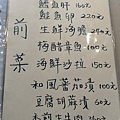 前菜
鱈魚肝 160元
鮭魚卵 220元
生鮮海膽 290元
梅醋章魚 100元
海鮮沙拉 150元
和風蕃茄漬 100元
豆腐胡麻漬 50元